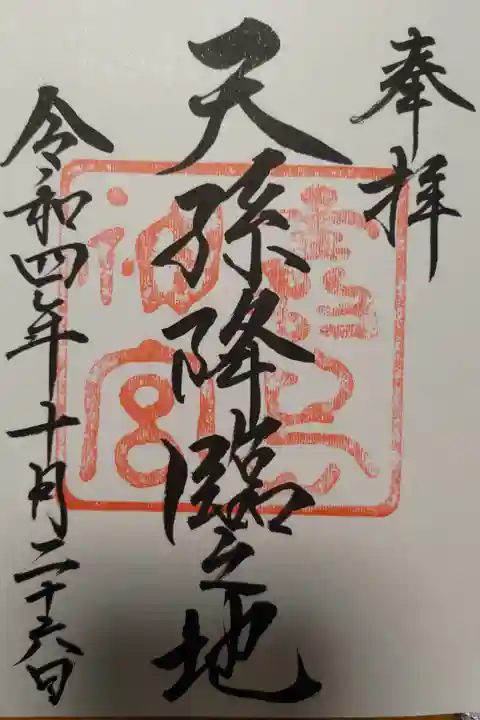 奉拝
天孫降臨之地
令和四年十月二十六日
霧島
神宮